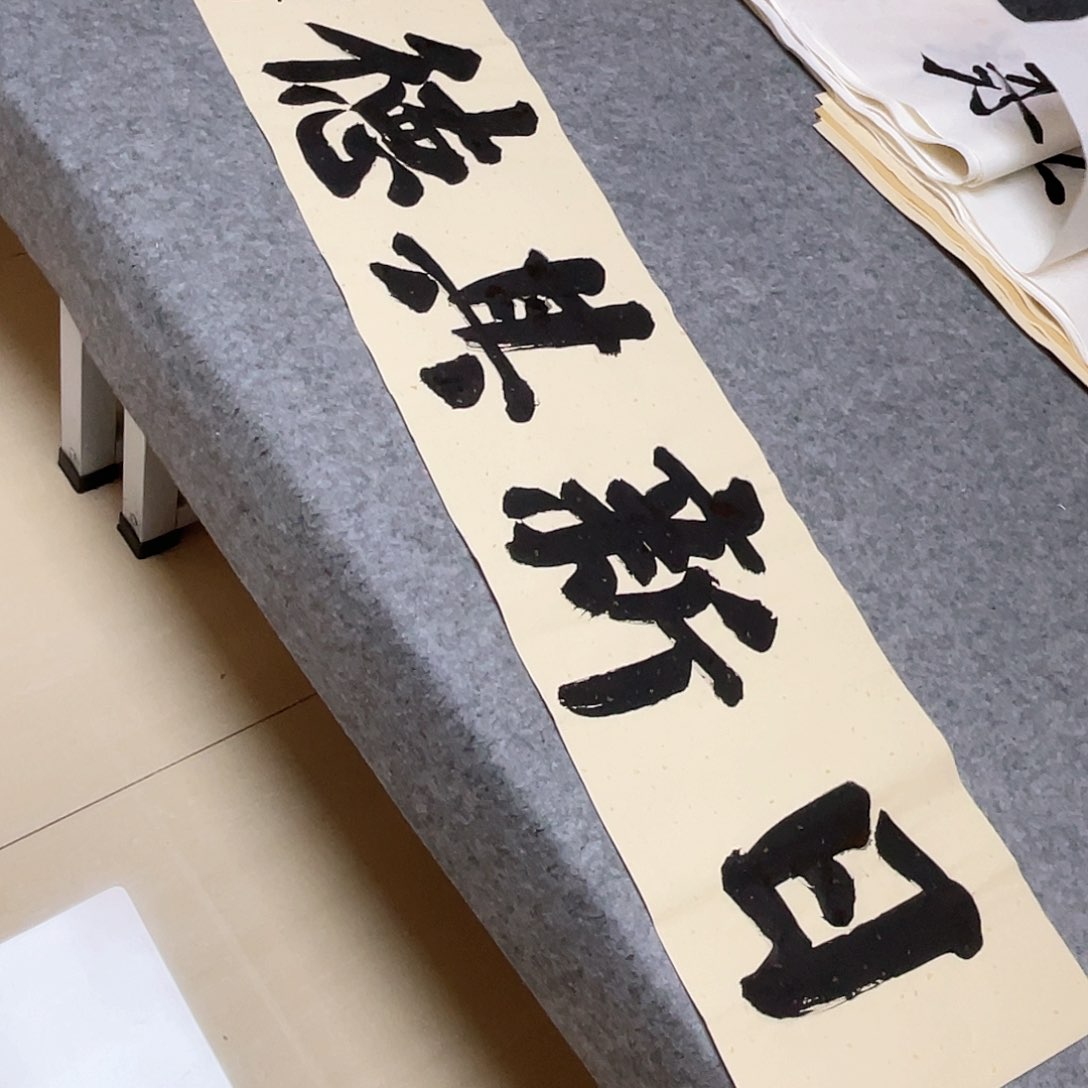 日新其德